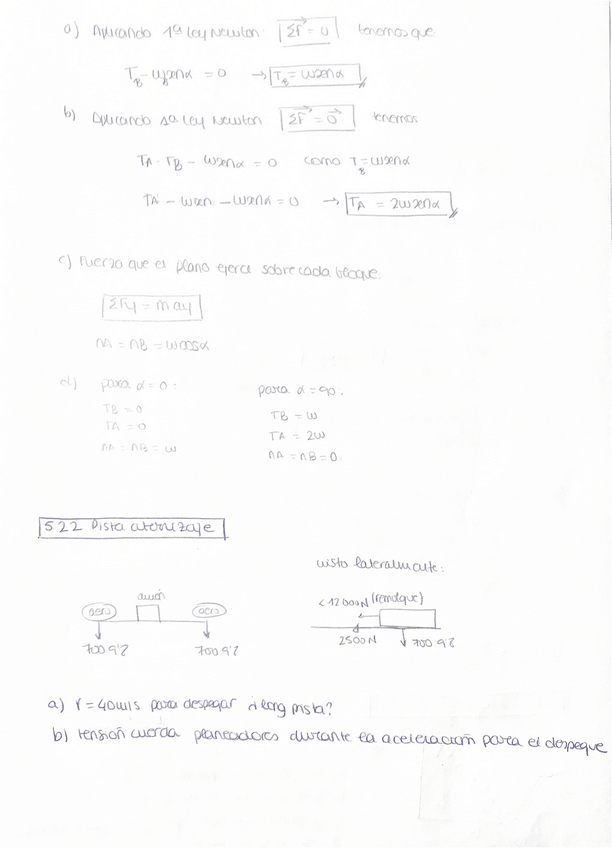 a) Aplicando 1ª Ley Newton ΣF = 0 tenemos que
T_B - W_B senα = 0 → T_B = wsenα
b) Aplicando 1ª Ley Newton ΣF = 0 tenemos
TA - TB - wsenα = 0 como T_B = wsenα
TA - wsen - wsenα = 0 → TA = 2wsenα
c) Fuerza que el plano ejerce sobre cada bloque.
ΣFy = may
nA = nB = wcosα
d) para α = 0:
TB = 0
TA = 0
nA = nB = w
para α = 90:
TB = w
TA = 2w
nA = nB = 0.
5.22 Pista aterrizaje
visto lateralmente:
avión
aero
aero
700 9'8
700 9'8
<12000N (remolque)
2500N
700 9'8
a) V = 40m/s para despegar ¿long pista?
b) tensión cuerda planeadores durante la aceleración para el despegue